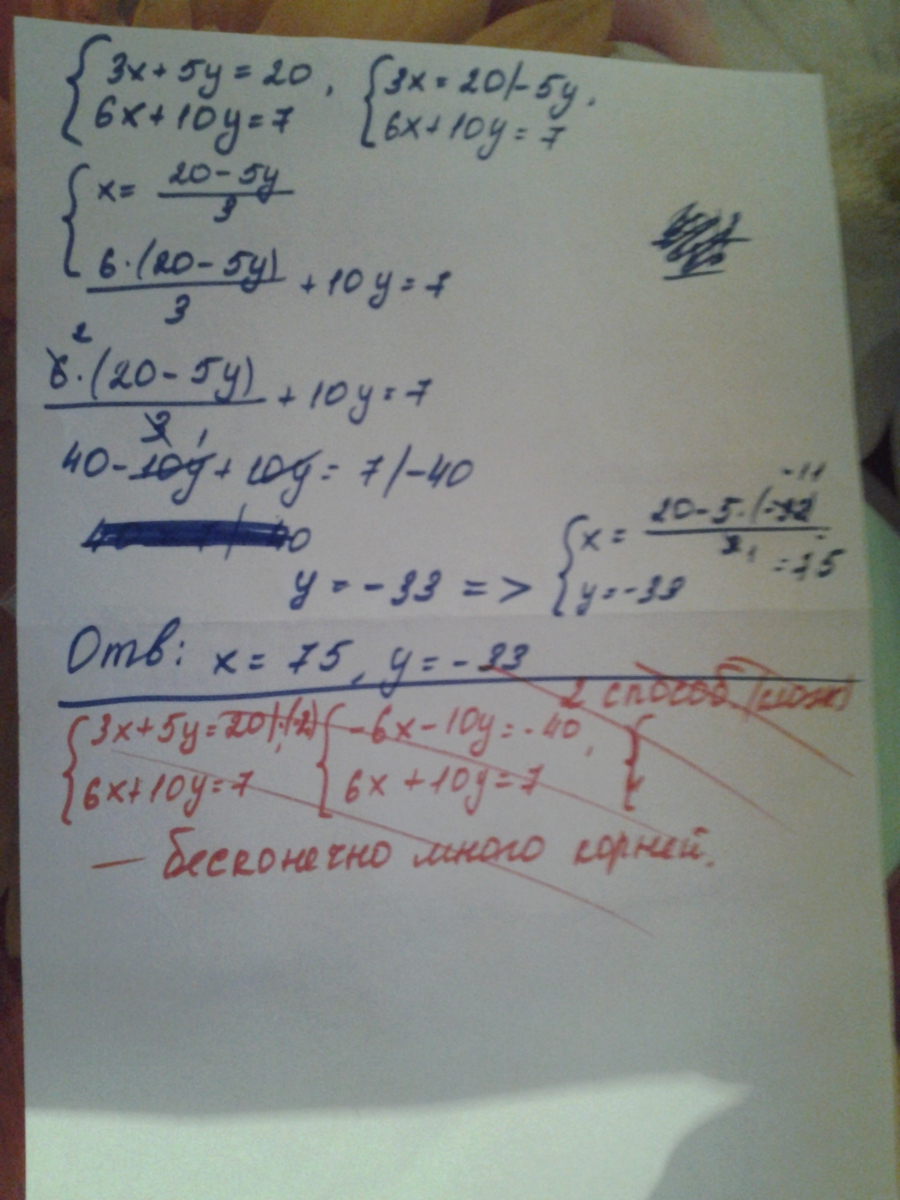 { 3x+5y=20 , { 3x=20/-5y,
6x+10y=7 6x+10y=7
{ x= (20-5y)/3
6·(20-5y)/3 +10y=7
2
6·(20-5y)/3 +10y=7
1
40-10y+10y=7/-40
-11
y=-33 => { x= (20-5·(-33))/3 =75
1
y=-33
Отв: x=75, y=-33
2 способ
{ 3x+5y=20/·(-2) { -6x-10y=-40, {
6x+10y=7 6x+10y=7
— бесконечно много корней.